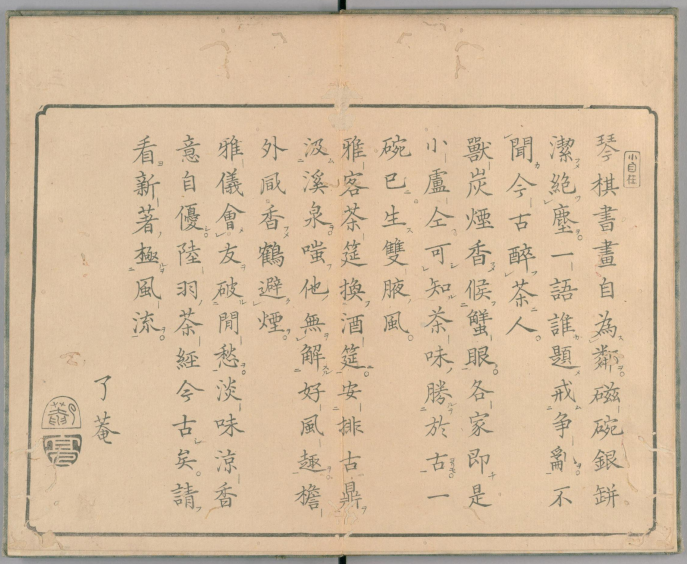 小自在
琴棋書畫自為鄰磁碗銀缾
潔絶塵。一語誰題戒争亂不
聞今古醉茶人。
獸炭煙香候蟹眼。各家即是
小盧仝可知茶味勝於古一
碗已生雙腋風。
雅客茶筵換酒筵。安排古鼎
汲溪泉嗤他無解好風趣檐
外香鶴避煙。
雅儀會友破閒愁。淡味涼香
意自優。陸羽茶經今古矣。請
看新著極風流。
了菴